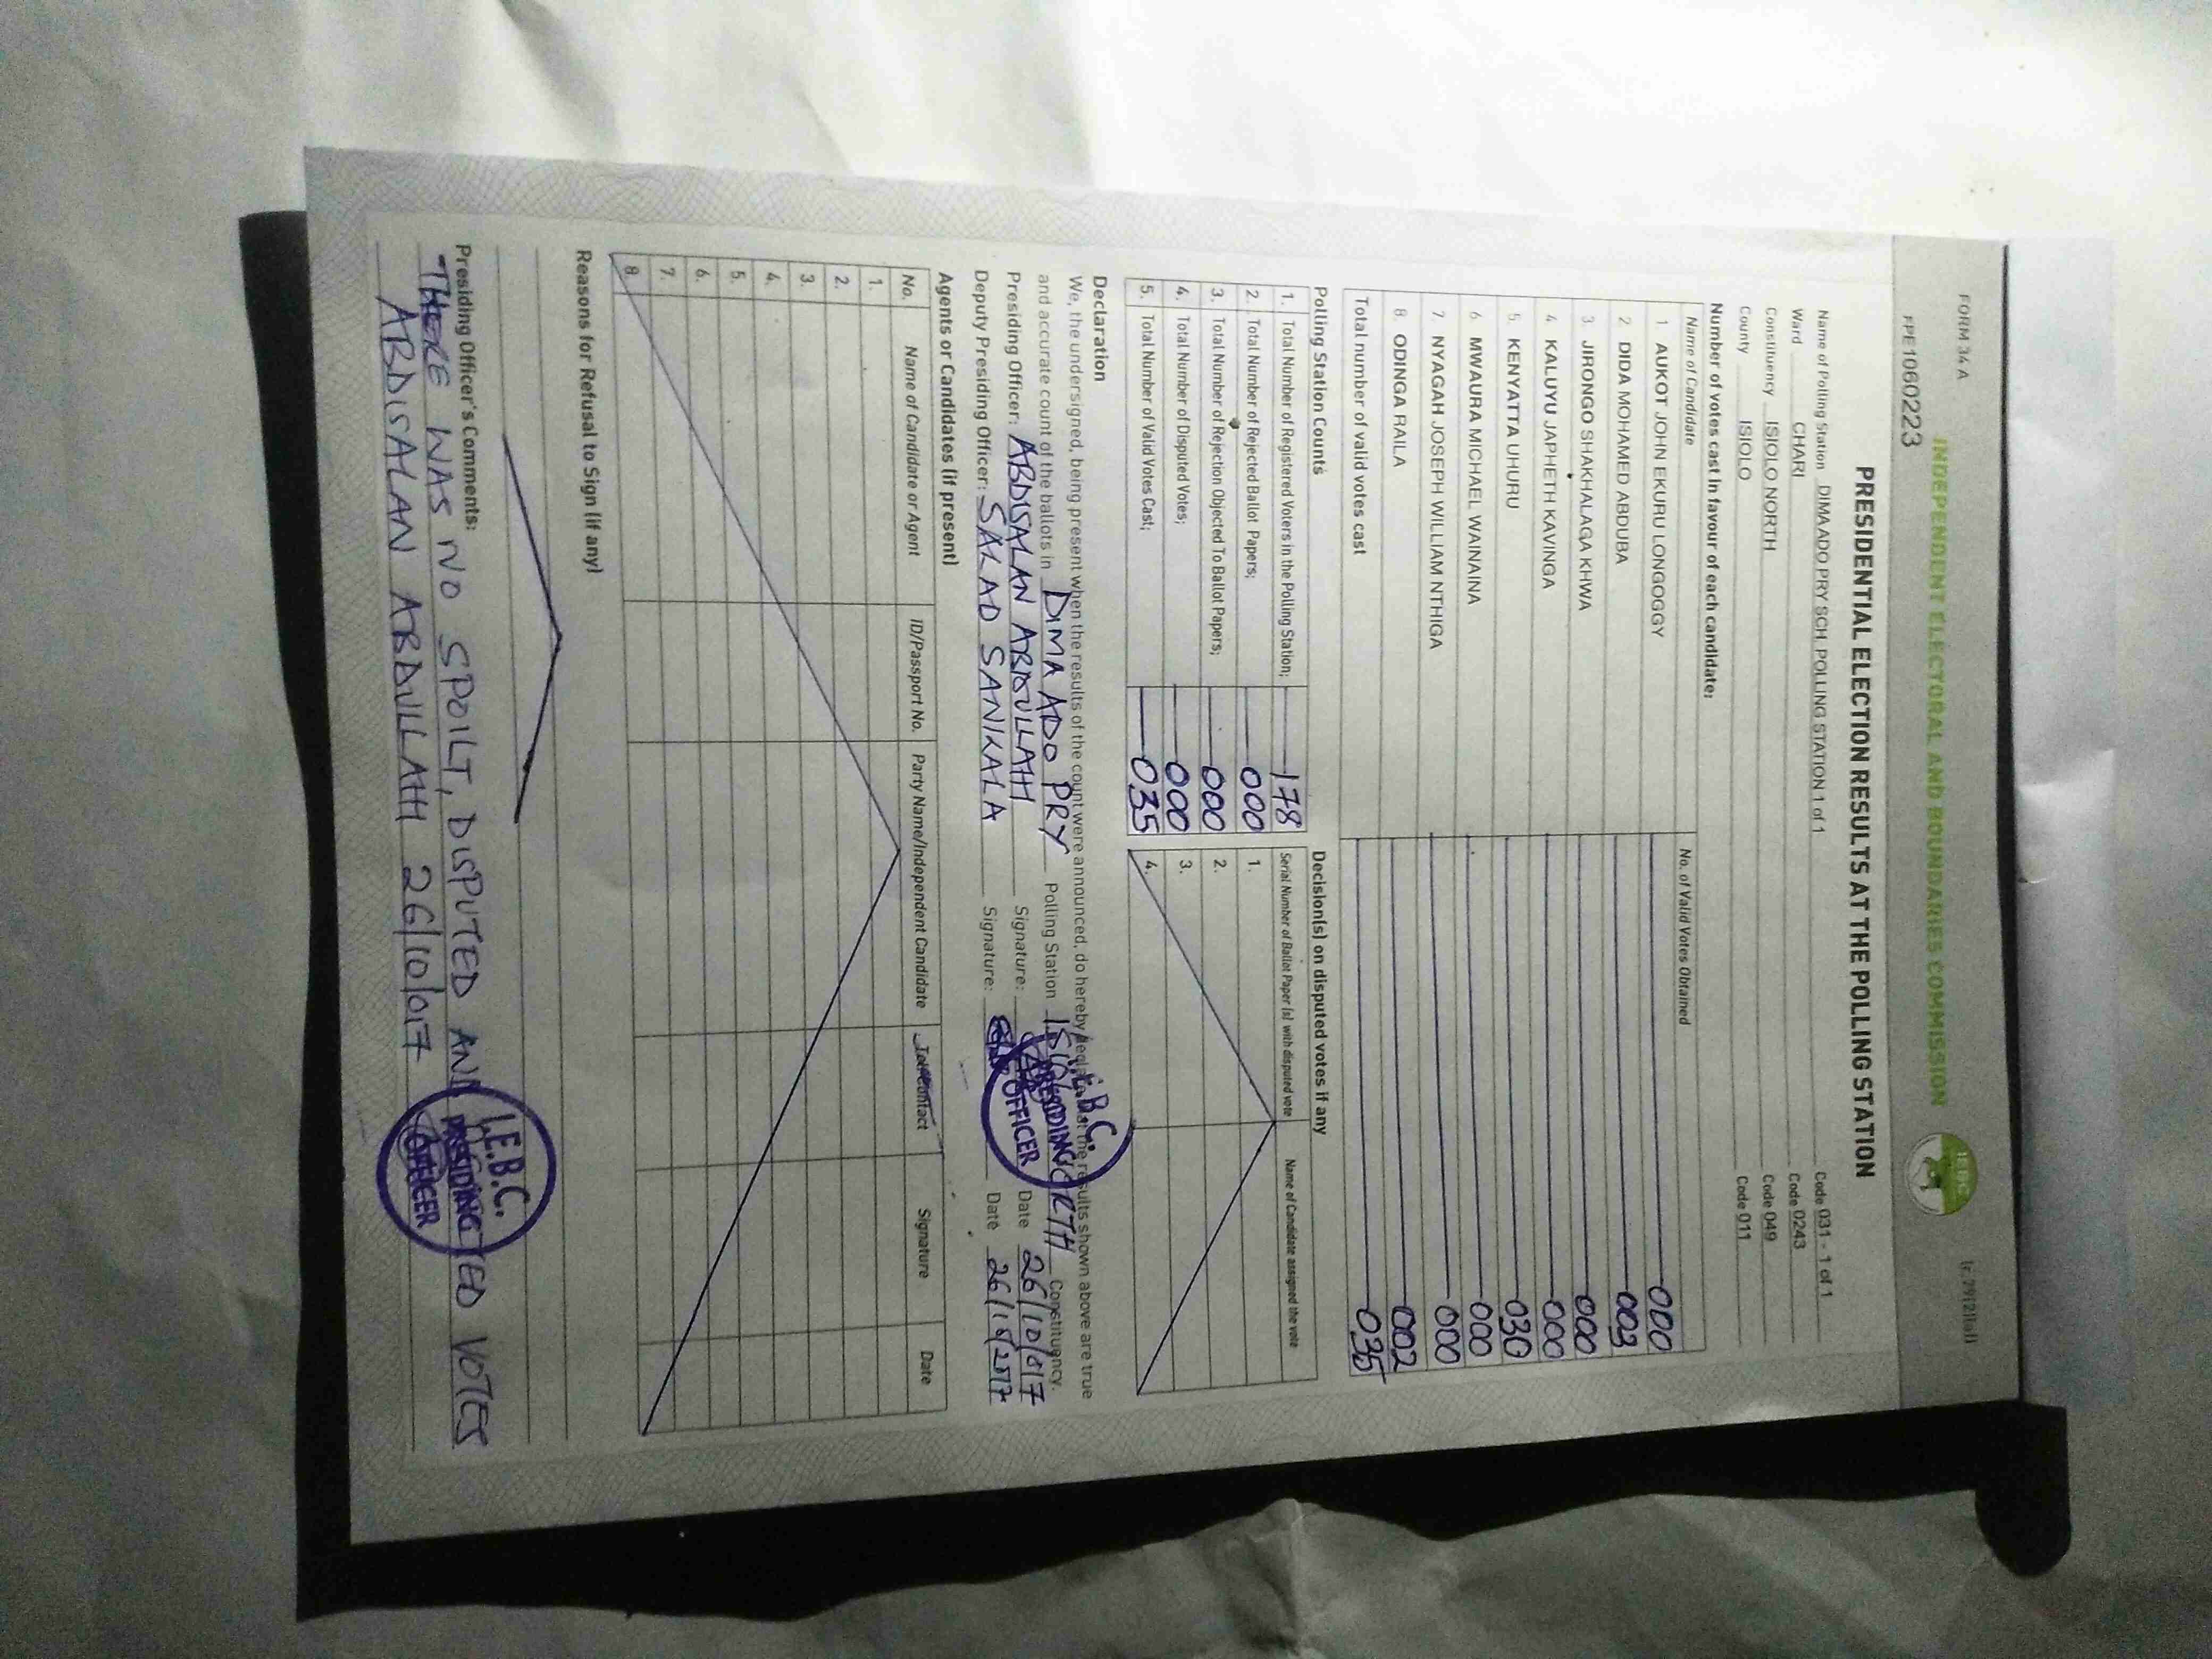 FORM 34 A
(r. 79(2)(a))
INDEPENDENT ELECTORAL AND BOUNDARIES COMMISSION
IEBC
FPE1060223
PRESIDENTIAL ELECTION RESULTS AT THE POLLING STATION
Name of Polling Station DIMA ADO PRY SCH. POLLING STATION 1 of 1 Code 031 - 1 of 1
Ward CHARI Code 0243
Constituency ISIOLO NORTH Code 049
County ISIOLO Code 011
Number of votes cast in favour of each candidate:
Name of Candidate No. of Valid Votes Obtained
1 AUKOT JOHN EKURU LONGOGGY 000
2 DIDA MOHAMED ABDUBA 003
3. JIRONGO SHAKHALAGA KHWA 000
4. KALUYU JAPHETH KAVINGA 000
5. KENYATTA UHURU 030
6 MWAURA MICHAEL WAINAINA 000
7 NYAGAH JOSEPH WILLIAM NTHIGA 000
8. ODINGA RAILA 002
Total number of valid votes cast 035
Polling Station Counts
1. Total Number of Registered Voters in the Polling Station; 178
2. Total Number of Rejected Ballot Papers; 000
3. Total Number of Rejection Objected To Ballot Papers; 000
4. Total Number of Disputed Votes; 000
5. Total Number of Valid Votes Cast; 035
Decision(s) on disputed votes if any
Serial Number of Ballot Paper (s) with disputed vote Name of Candidate assigned the vote
1.
2.
3.
4.
Declaration
We, the undersigned, being present when the results of the count were announced, do hereby declare that the results shown above are true
and accurate count of the ballots in DIMA ADO PRY Polling Station ISIOLO NORTH Constituency.
Presiding Officer: ABDISALAN ABDULLAHI Signature: Date 26/10/017
Deputy Presiding Officer: SALAD SANKALA Signature: Date 26/10/2017
I.E.B.C.
PRESIDING
OFFICER
Agents or Candidates (if present)
No. Name of Candidate or Agent ID/Passport No. Party Name/Independent Candidate Tel Contact Signature Date
1.
2.
3.
4.
5.
6.
7.
8.
Reasons for Refusal to Sign (if any)
Presiding Officer's Comments:
-THERE WAS NO SPOILT, DISPUTED AND REJECTED VOTES
ABDISALAN ABDULLAHI 26/10/017
I.E.B.C.
PRESIDING
OFFICER